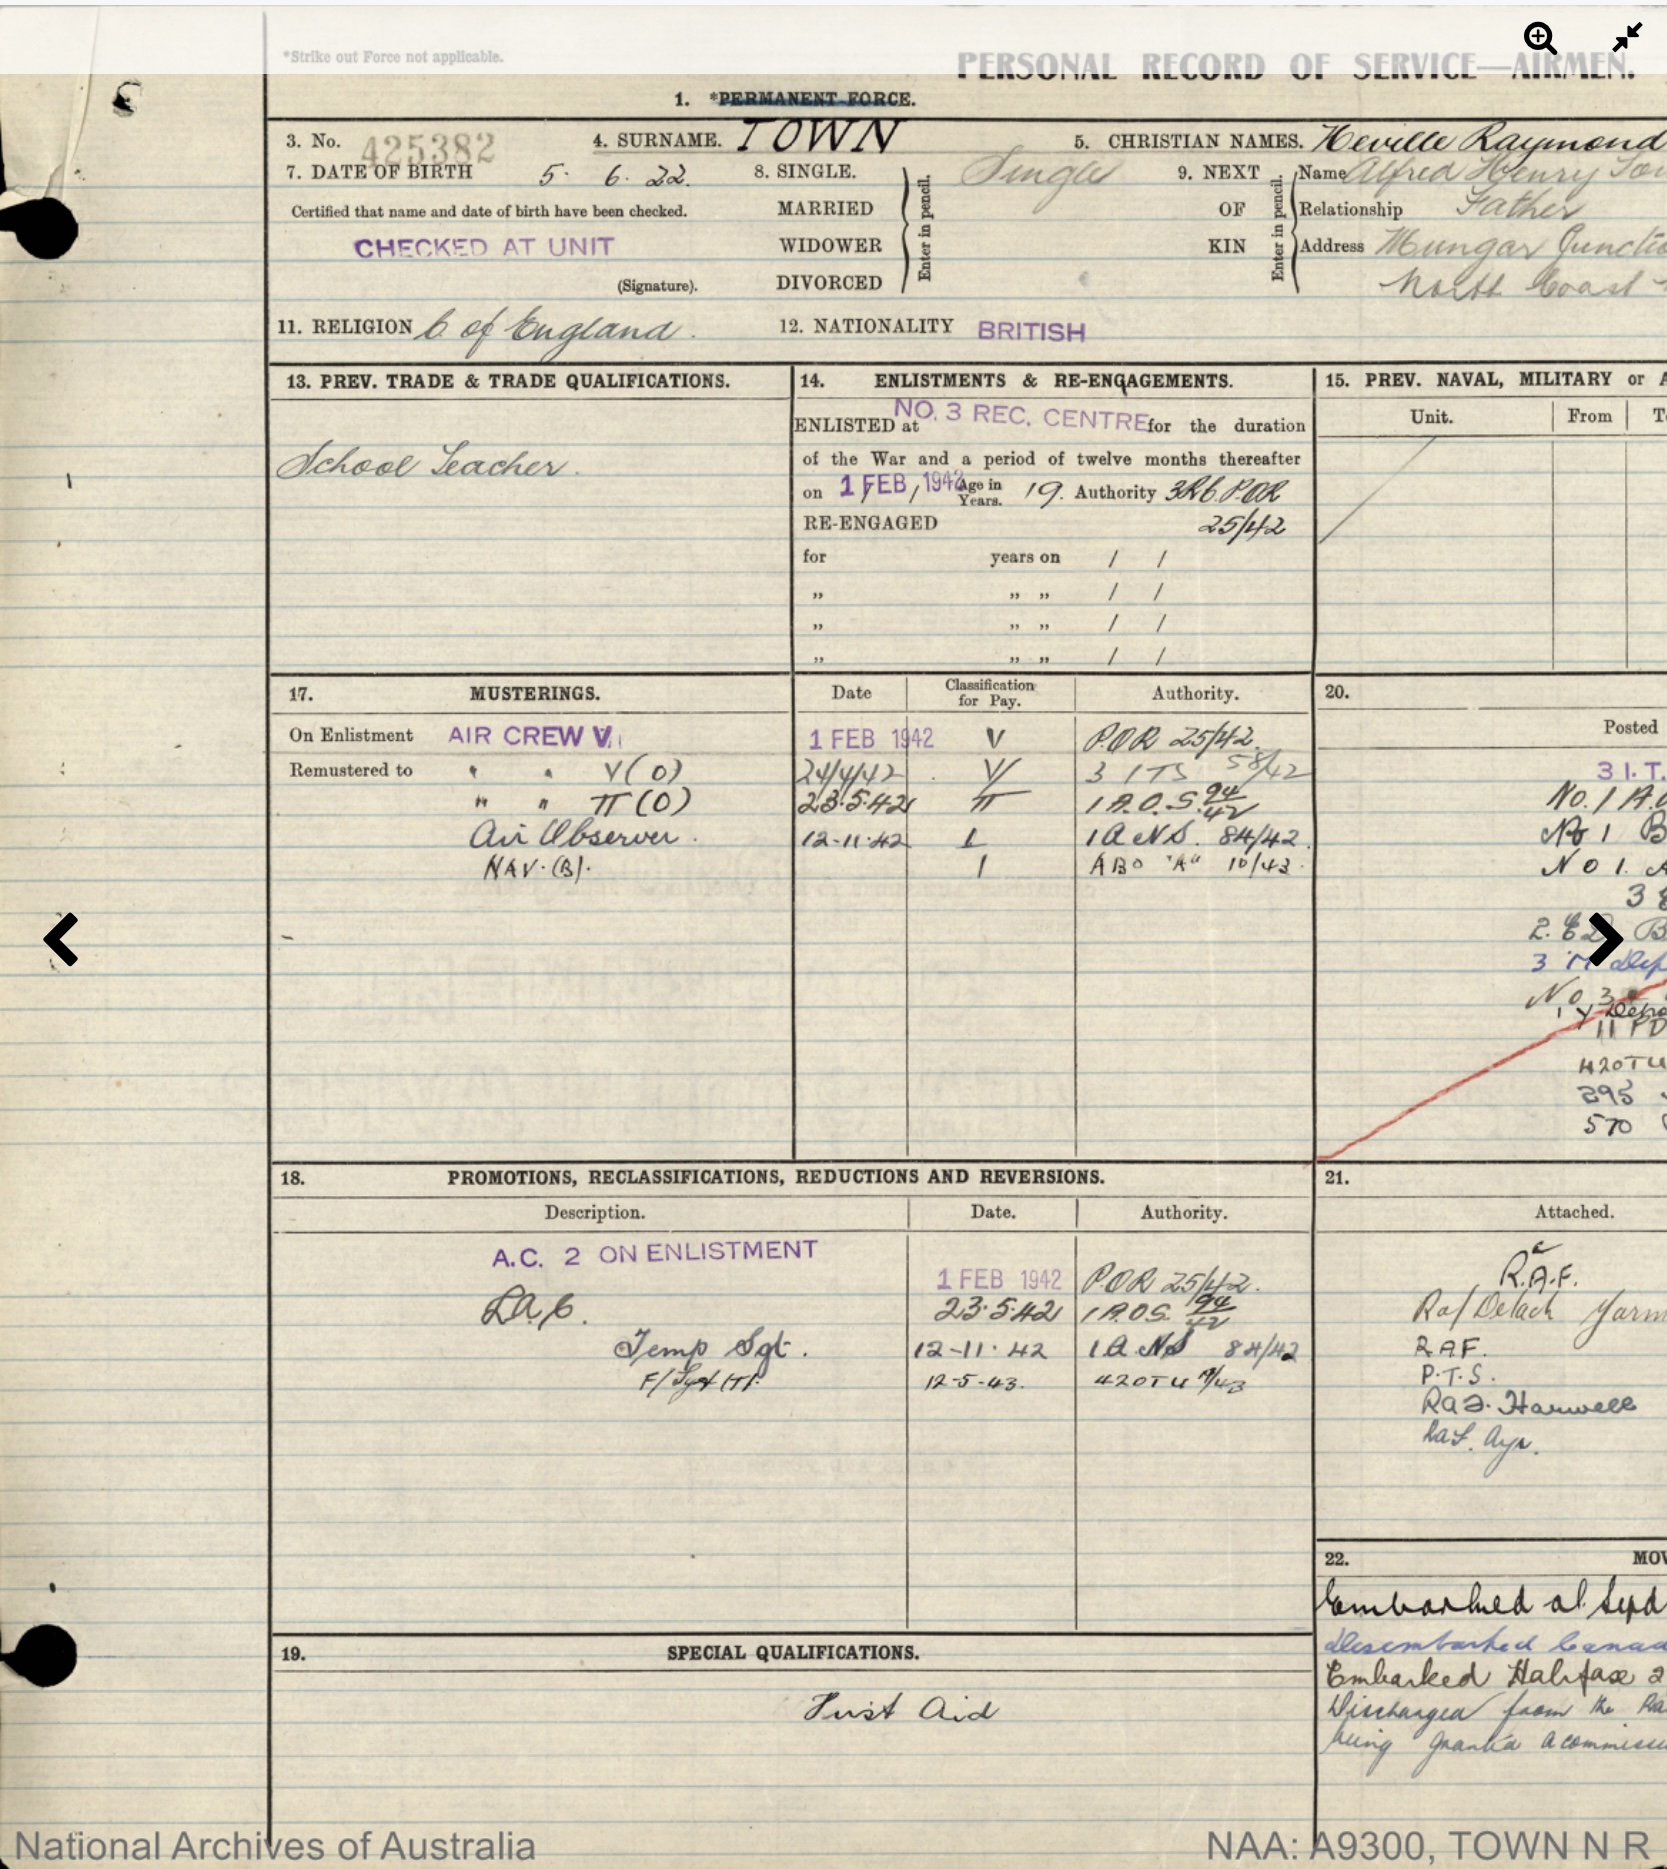 *Strike out Force not applicable.
PERSONAL RECORD OF SERVICE—AIRMEN.
1. *PERMANENT FORCE.
3. No. 425382 4. SURNAME. TOWN 5. CHRISTIAN NAMES. Neville Raymond
7. DATE OF BIRTH 5. 6. 22. 8. SINGLE. Single 9. NEXT Name Alfred Henry
Certified that name and date of birth have been checked. MARRIED OF Relationship Father
CHECKED AT UNIT WIDOWER Enter in pencil. KIN Enter in pencil. Address Mungar
(Signature). DIVORCED North Coast
11. RELIGION C. of England. 12. NATIONALITY BRITISH
13. PREV. TRADE & TRADE QUALIFICATIONS. 14. ENLISTMENTS & RE-ENGAGEMENTS. 15. PREV. NAVAL, MILITARY or
NO. 3 REC. CENTRE Unit. From
ENLISTED at for the duration
School Teacher. of the War and a period of twelve months thereafter
on 1 FEB 1942 Age in Years. 19. Authority 3RC. P.O.R
RE-ENGAGED 25/42
for years on / /
„ „ „ / /
„ „ „ / /
„ „ „ / /
17. MUSTERINGS. Date Classification for Pay. Authority. 20.
On Enlistment AIR CREW V 1 FEB 1942 V P.O.R 25/42. Posted
Remustered to " " V(O) 24/4/42 V 3 ITS 58/42 3 I.T.
" " II(O) 23.5.42 II 1 A.O.S. 94/42 No. 1
Air Observer. 12-11-42 I 1 A.N.S. 84/42. No 1 B
NAV.(B). I ABO "A" 10/43. No 1.
2. ED
3
No 3
11 PD
42OTU
295
570
18. PROMOTIONS, RECLASSIFICATIONS, REDUCTIONS AND REVERSIONS. 21.
Description. Date. Authority. Attached.
A.C. 2 ON ENLISTMENT 1 FEB 1942 P.O.R 25/42. R.A.F.
L.A.C. 23.5.42 1 A.O.S. 94/42 Raf Detach
Temp Sgt. 12-11-42 1 A.N.S 84/42 RAF.
F/Sgt (T). 12-5-43. 42OTU P.T.S.
Harwell
Ayr.
22.
Embarked at
19. SPECIAL QUALIFICATIONS. Disembarked
Embarked Halifax
First Aid Discharged from the
being granted a
National Archives of Australia NAA: A9300, TOWN N R